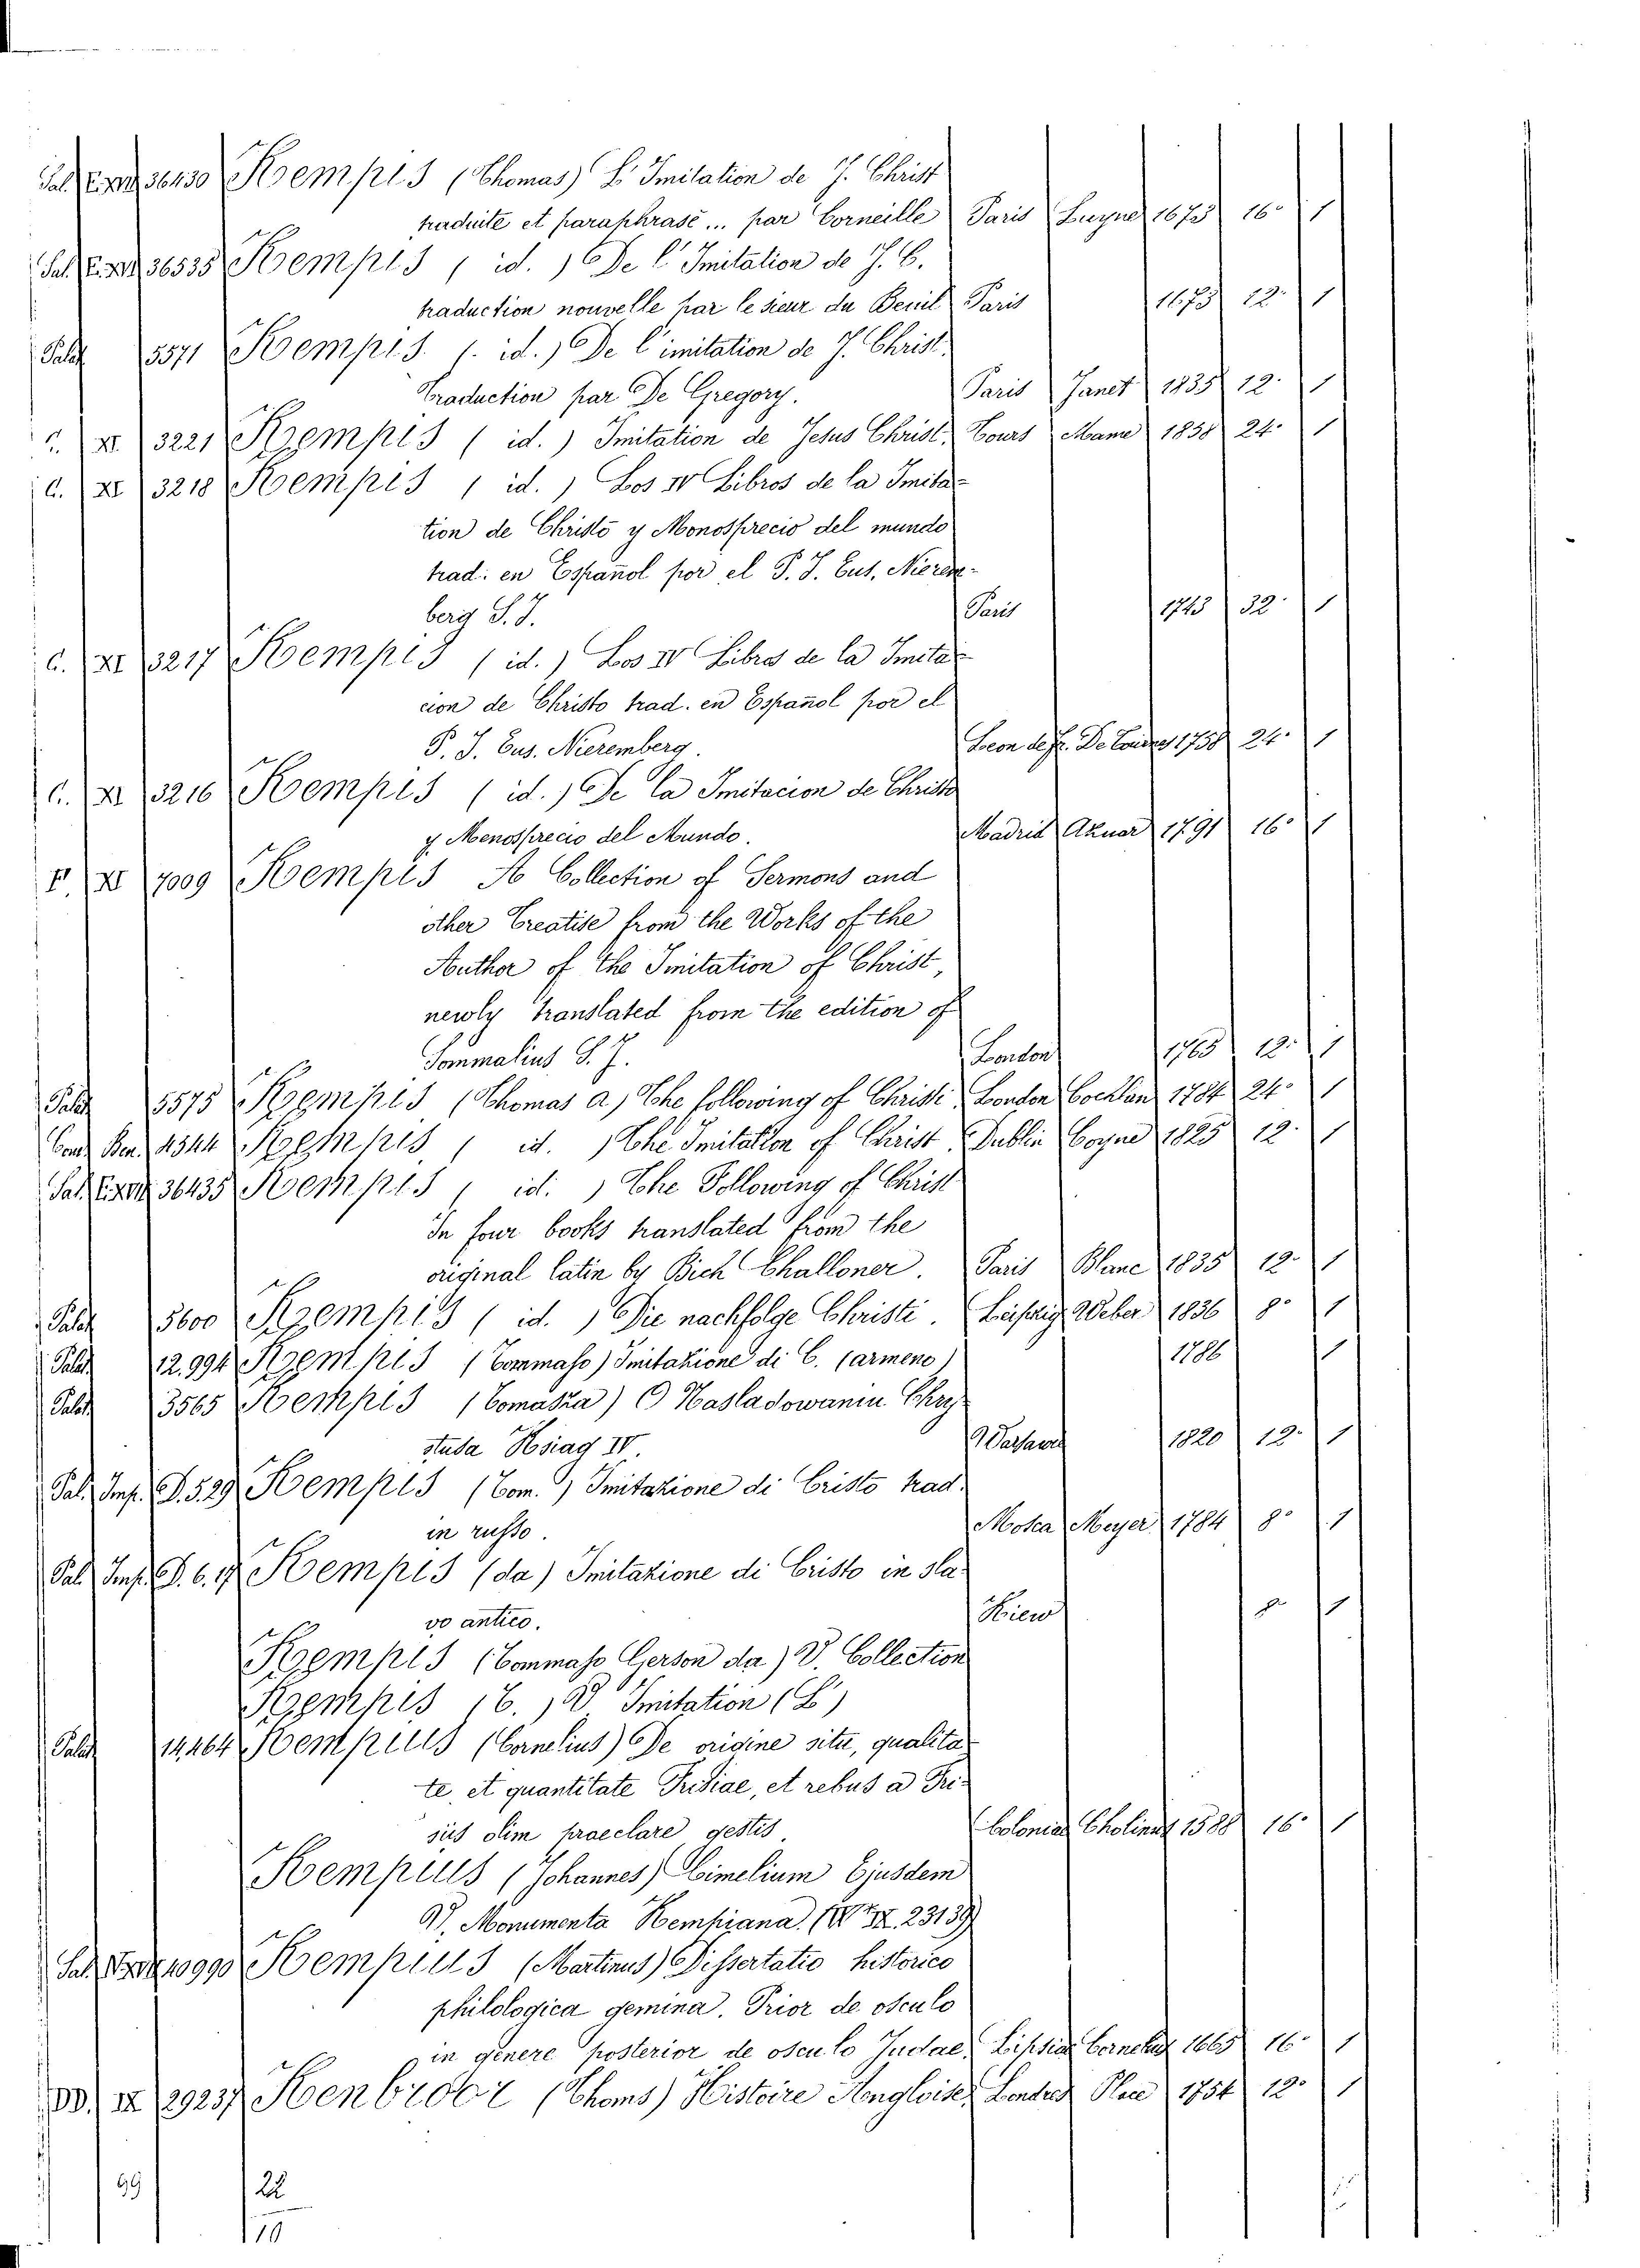 Pal. E. 36430 Kempis (Thomas) L' Imitation de J. Christ
traduite et paraphrasé... par Corneille Paris Luyne 1673 16° 1
Pal. E. 36535 Kempis ( id. ) De l' Imitation de J. C.
traduction nouvelle par le sieur du Beuil Paris 1673 12° 1
Palat 5571 Kempis ( id. ) De l' imitation de J. Christ.
Traduction par De Gregory. Paris Janet 1835 12° 1
C. XI 3221 Kempis ( id. ) Imitation de Jesus Christ. Tours Mame 1838 24° 1
C. XI 3218 Kempis ( id. ) Los IV Libros de la Imita-
tion de Christo y Monosprecio del mundo
trad: en Español por el P. J. Eus. Nierem-
berg S. J. Paris 1743 32° 1
C. XI 3217 Kempis ( id. ) Los IV Libros de la Imita-
cion de Christo trad. en Español por el
P. J. Eus. Nieremberg. Leon de Fr. De Tournes 1758 24° 1
C. XI 3216 Kempis ( id. ) De la Imitacion de Christo
y Menosprecio del Mundo. Madrid Aznar 1791 16° 1
F. XI 7009 Kempis A Collection of Sermons and
other Treatise from the Works of the
Author of the Imitation of Christ,
newly translated from the edition of
Sommalius S. J. London 1765 12° 1
Palat 5575 Kempis (Thomas a) The following of Christi London Cochlan 1784 24° 1
Cons. Ben. 4344 Kempis ( id. ) The Imitation of Christ Dublin Coyne 1825 12° 1
Pal. E. 36435 Kempis ( id. ) The Following of Christ
In four books translated from the
original latin by Bich Challoner. Paris Blanc 1835 12° 1
Palat 5600 Kempis ( id. ) Die nachfolge Christi. Leipzig Weber 1836 8° 1
Palat. 12.994 Kempis (Tommaso) Imitazione di C. (armeno) 1786 1
Palat. 3565 Kempis (Tomasza) O Nasladowaniu Chry-
stusa Ksiag IV. Warsawa 1820 12° 1
Pal. Imp. D. 5.29 Kempis (Tom.) Imitazione di Cristo trad.
in russo. Mosca Meyer 1784 8° 1
Pal. Imp. D. 6. 17 Kempis (da) Imitazione di Cristo in sla-
vo antico. Kiew 8° 1
Kempis (Tommaso Gerson da) V. Collection
Kempis (T.) V. Imitation (L')
Palat 14,464 Kempius (Cornelius) De origine situ, qualita-
te, et quantitate Frisiae, et rebus a Fri-
siis olim praeclare gestis. Coloniae Cholinus 1588 16° 1
Kempius (Johannes) Cimelium Ejusdem
V. Monumenta Kempiana. 23139
Sal. 10990 Kempius (Martinus) Dissertatio historico
philologica gemina. Prior de osculo
in genere posterior de osculo Judae. Lipsiae Cornelus 1665 16° 1
DD. IX 29237 Kenbroor (Thoms) Histoire Angloise. Londres Place 1754 12° 1
99 22
19